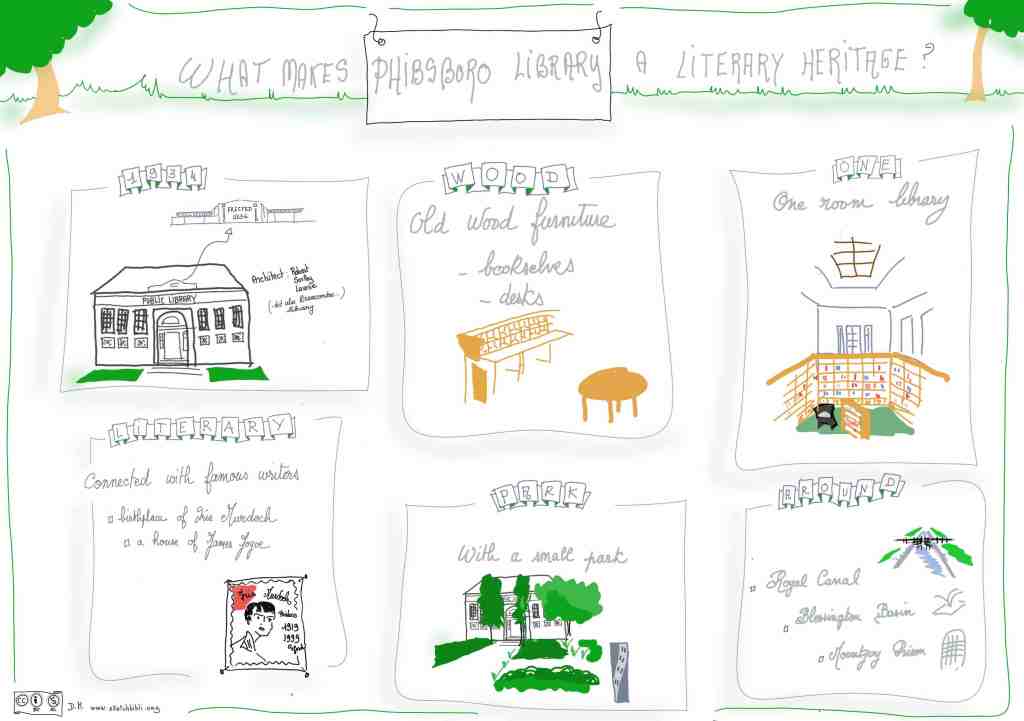 WHAT MAKES PHIBSBORO LIBRARY A LITERARY HERITAGE?
1934
ERECTED
1934
PUBLIC LIBRARY
Architect: Robert
Sorley
Lawrie
library
WOOD
Old Wood furniture
- bookselves
- desks
ONE
One room library
LITERARY
Connected with famous writers
birthplace of Iris Murdoch
a house of James Joyce
Iris Murdoch
1919
1999
PARK
With a small park
AROUND
Royal Canal
Blessington Basin
Mountjoy Prison
CC BY
D.H. www.sketchbibli.org